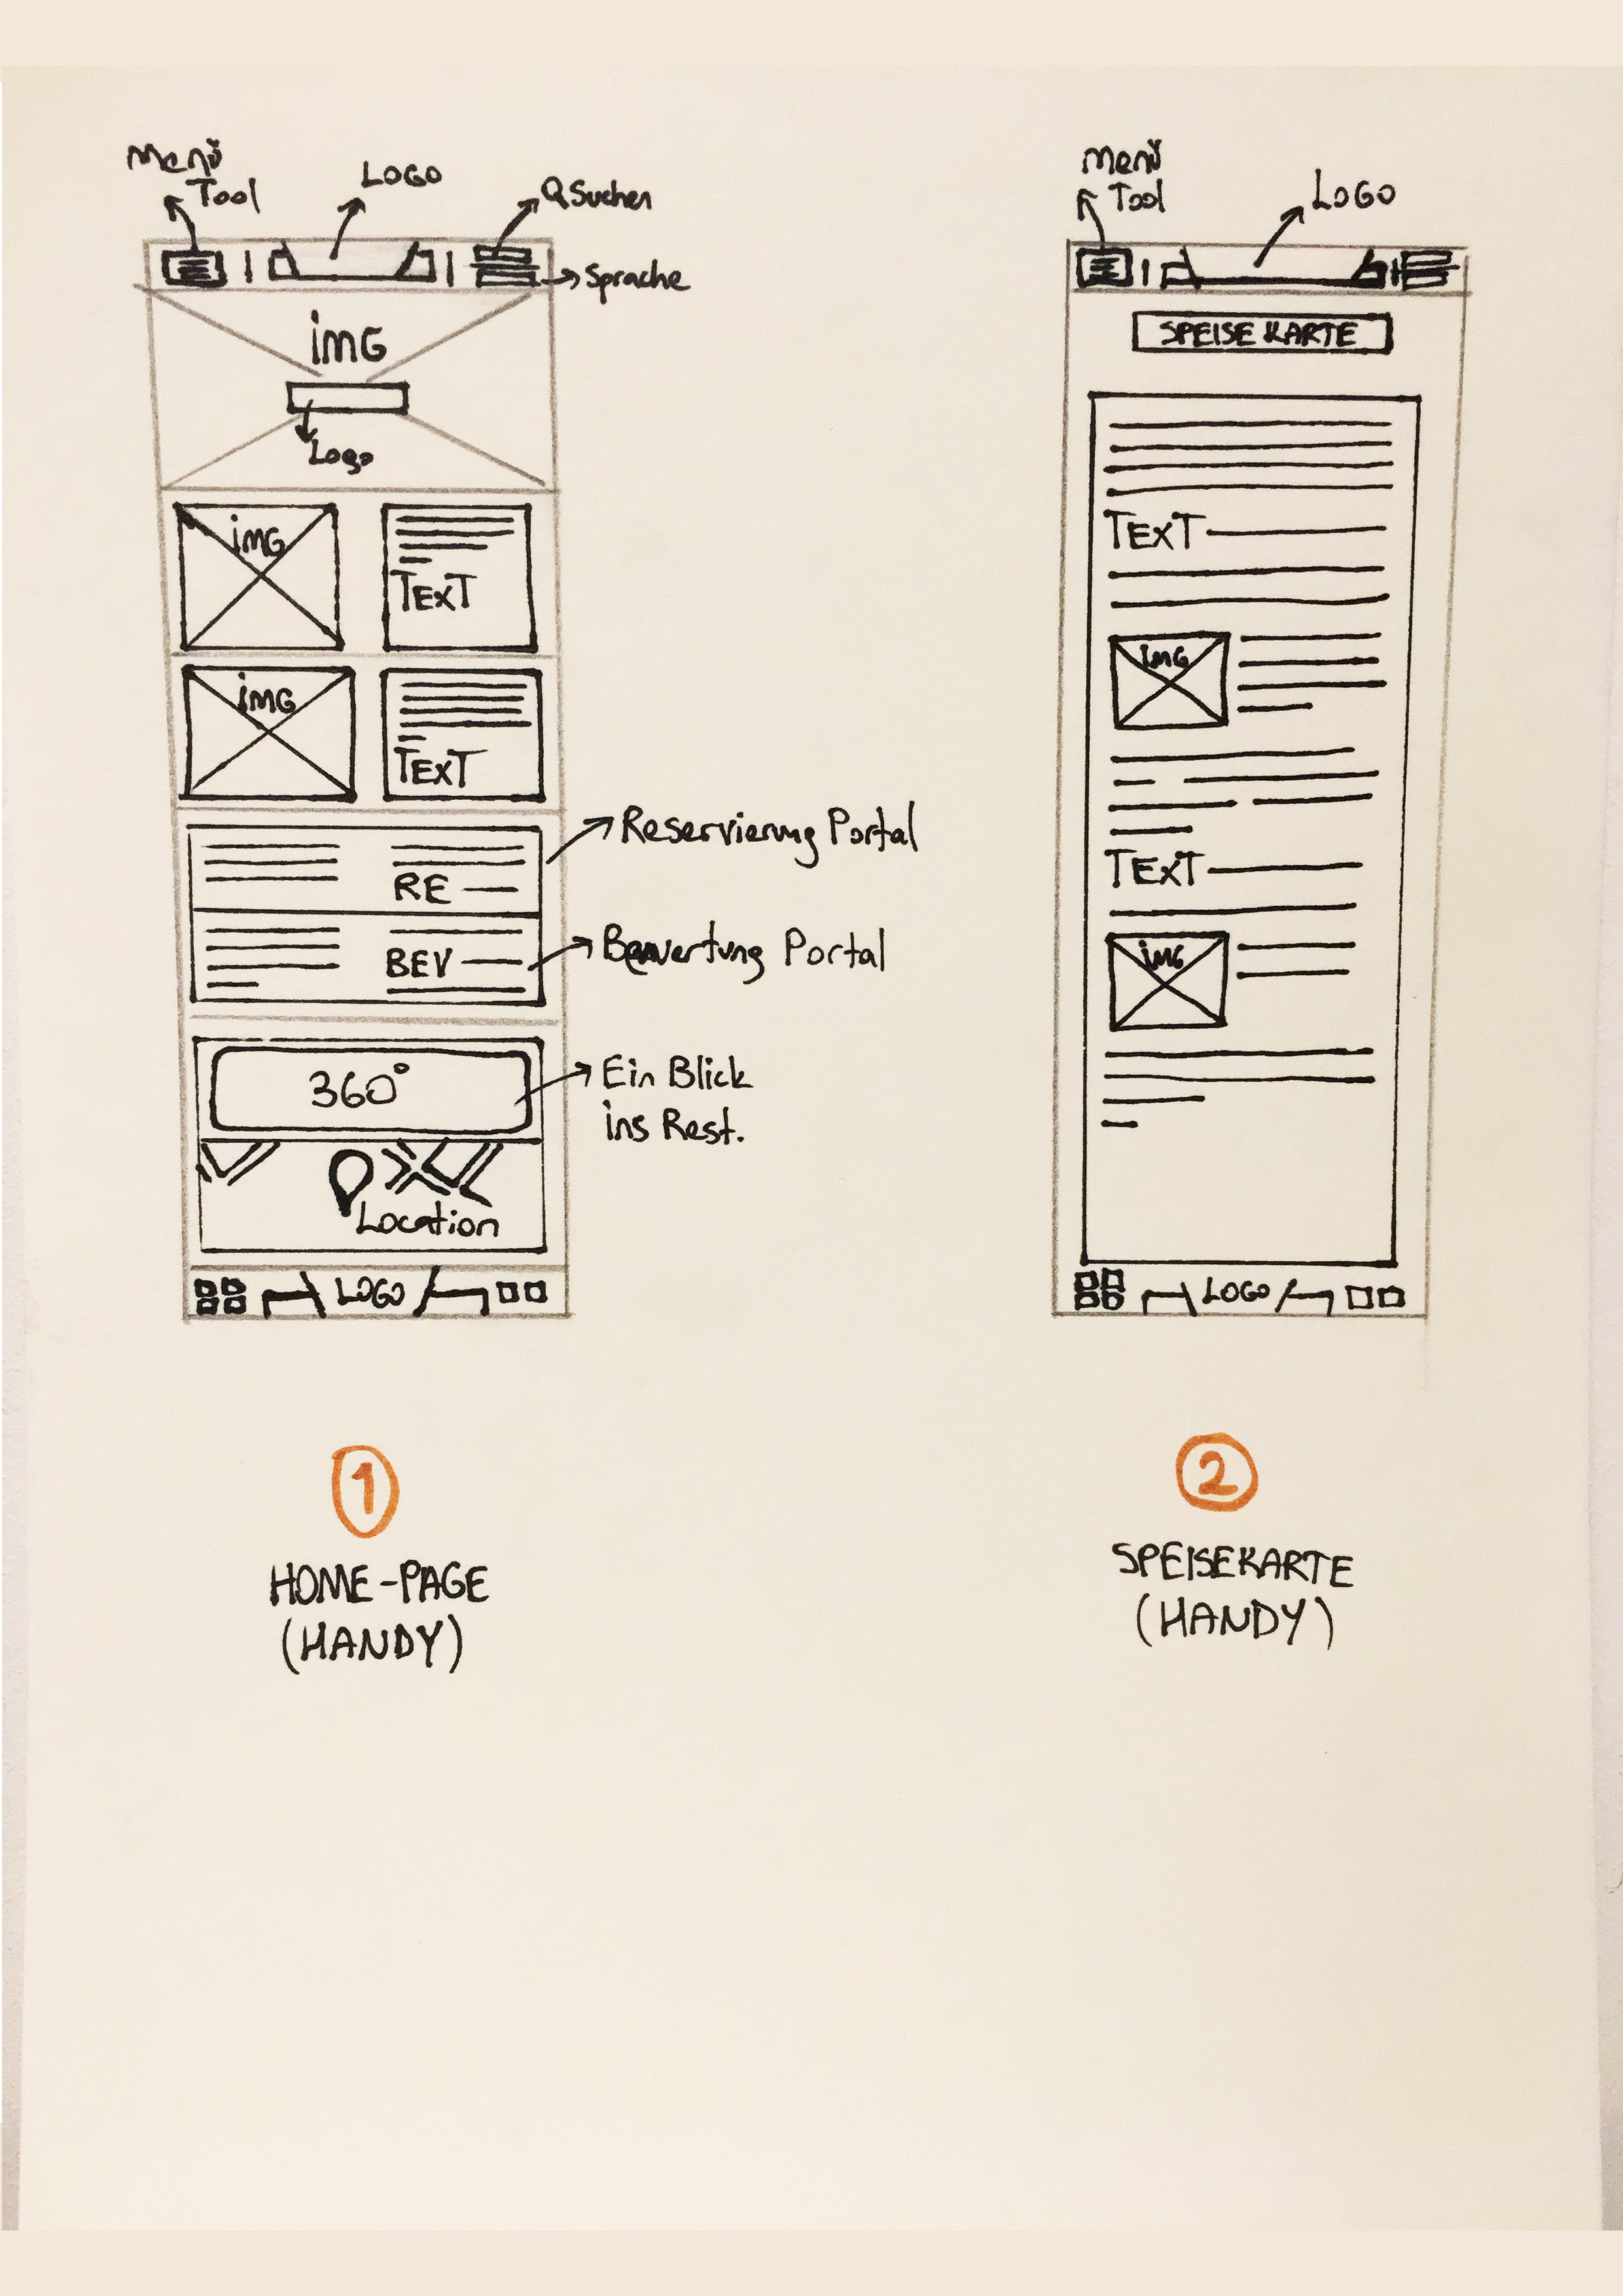 Menü
Tool
LOGO
Suchen
Sprache
img
Logo
img
TEXT
img
TEXT
Reservierung Portal
RE
Bewertung Portal
BEV
360°
Ein Blick
ins Rest.
Location
LOGO
1
HOME-PAGE
(HANDY)
Menü
Tool
LOGO
SPEISE KARTE
TEXT
img
TEXT
img
LOGO
2
SPEISEKARTE
(HANDY)